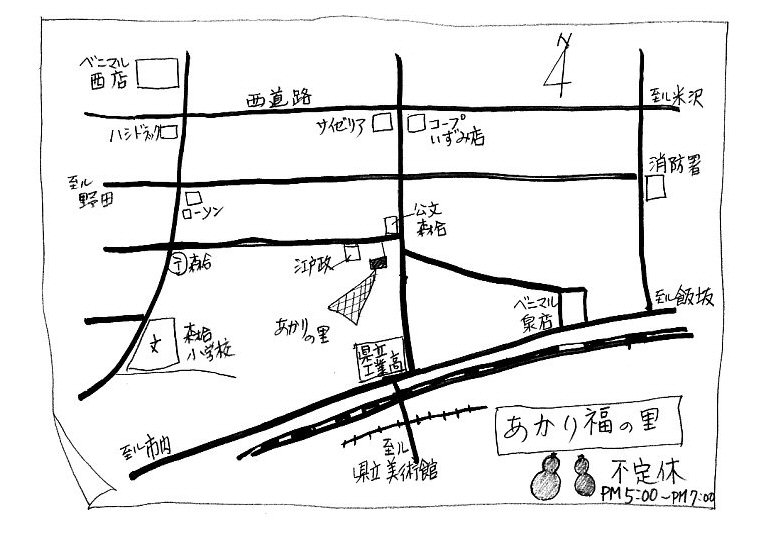 ベニマル
西店
N
西道路
至ル米沢
ハシドラッグ
サイゼリア
コープ
いずみ店
消防署
至ル
野田
ローソン
公文
森合
〒森合
江戸政
あかり
の里
ベニマル
泉店
至ル飯坂
文
森合
小学校
県立
工業高
至ル市内
至ル
県立美術館
あかり福の里
不定休
PM5:00~PM7:00